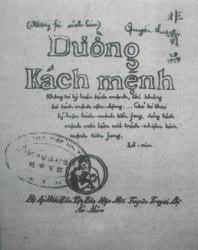 (Không fải sách bán)
非賣品
Quyển thứ
Duờng
Kách mệnh
Không có lý luận kách mệnh, thì không
có kách mệnh vận động. ... Chỉ có theo
lý luận kách mệnh tiền fong, đảng kách
mệnh mới làm nổi trách nhiệm kách
mệnh tiền fong.
Lê-nin
Bị Áp Bức Tộc Liên Hợp Hội Tuyên Truyền Bộ
Ấn Hành